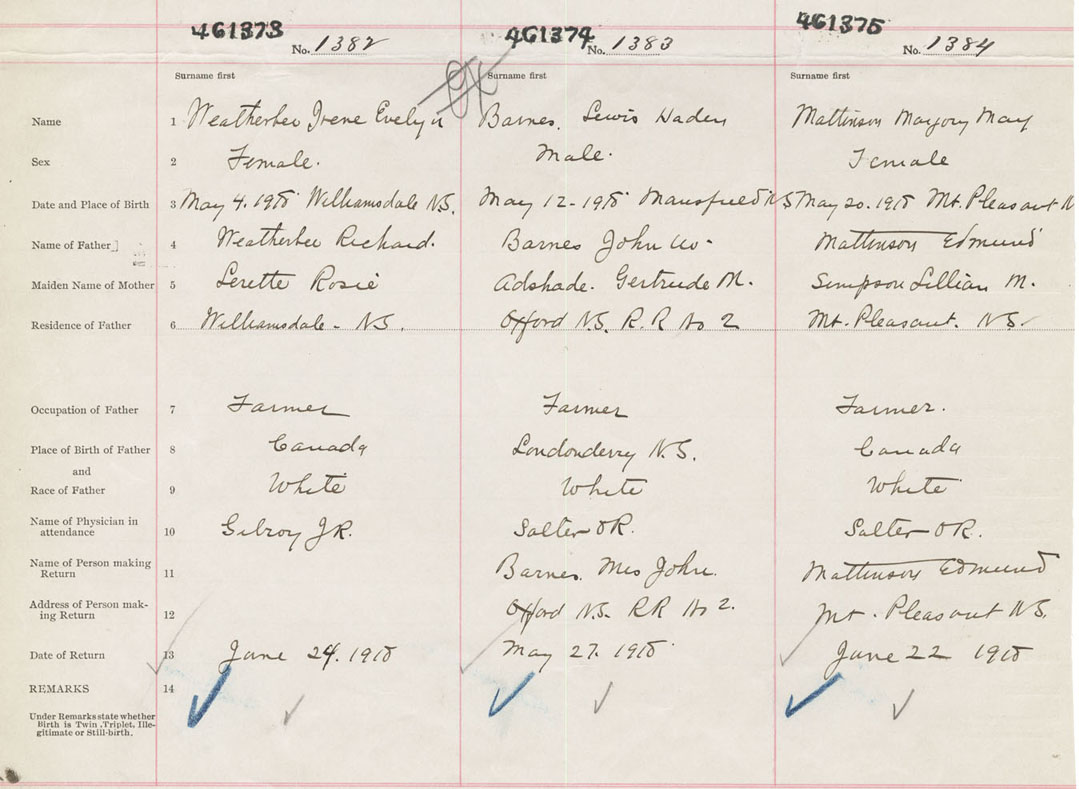 461373 461374 461375
No. 1382 No. 1383 No. 1384
Surname first Surname first Surname first
Name 1 Weatherbee Irene Evelyn Barnes, Lewis Haden Mattinson Margory May
Sex 2 Female. Male. Female
Date and Place of Birth 3 May 4. 1918 Williamsdale N.S. May 12 - 1918 Mansfield N.S May 20. 1918 Mt. Pleasant N
Name of Father 4 Weatherbee Richard. Barnes John W. Mattinson Edmund
Maiden Name of Mother 5 Lerette Rosie Adshade. Gertrude M. Simpson Lillian M.
Residence of Father 6 Williamsdale - N.S. Oxford N.S. R.R No 2 Mt. Pleasant. N.S.
Occupation of Father 7 Farmer Farmer Farmer.
Place of Birth of Father 8 Canada Londonderry N.S. Canada
and
Race of Father 9 White White White
Name of Physician in
attendance 10 Gilroy J R. Salter D R. Salter D R.
Name of Person making
Return 11 Barnes. Mrs John. Mattinson Edmund
Address of Person mak-
ing Return 12 Oxford N.S. RR No 2. Mt. Pleasant N.S.
Date of Return 13 June 24. 1918 May 27. 1918 June 22 1918
REMARKS 14
Under Remarks state whether
Birth is Twin, Triplet, Ille-
gitimate or Still-birth.